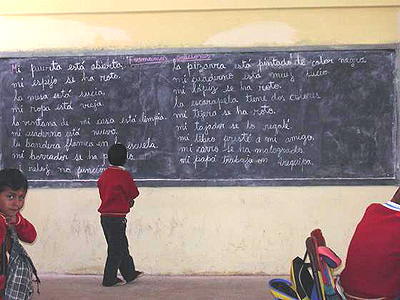 Formamos oraciones
Mi puerta está abierta.
mi espejo se ha roto.
la mesa está sucia.
mi ropa está vieja.
la ventana de mi casa está limpia.
mi cuaderno está nuevo.
la bandera flamea en escuela.
mi borrador se ha
reloj no funciona
la pizarra está pintado de color negra
mi cuaderno está muy sucio
mi lápiz se ha roto.
la escarapela tiene dos colores
mi tijera se ha roto.
mi tajador se lo regalé.
mi libro presté a mi amigo.
mi carro se ha malogrado
mi papá trabaja en